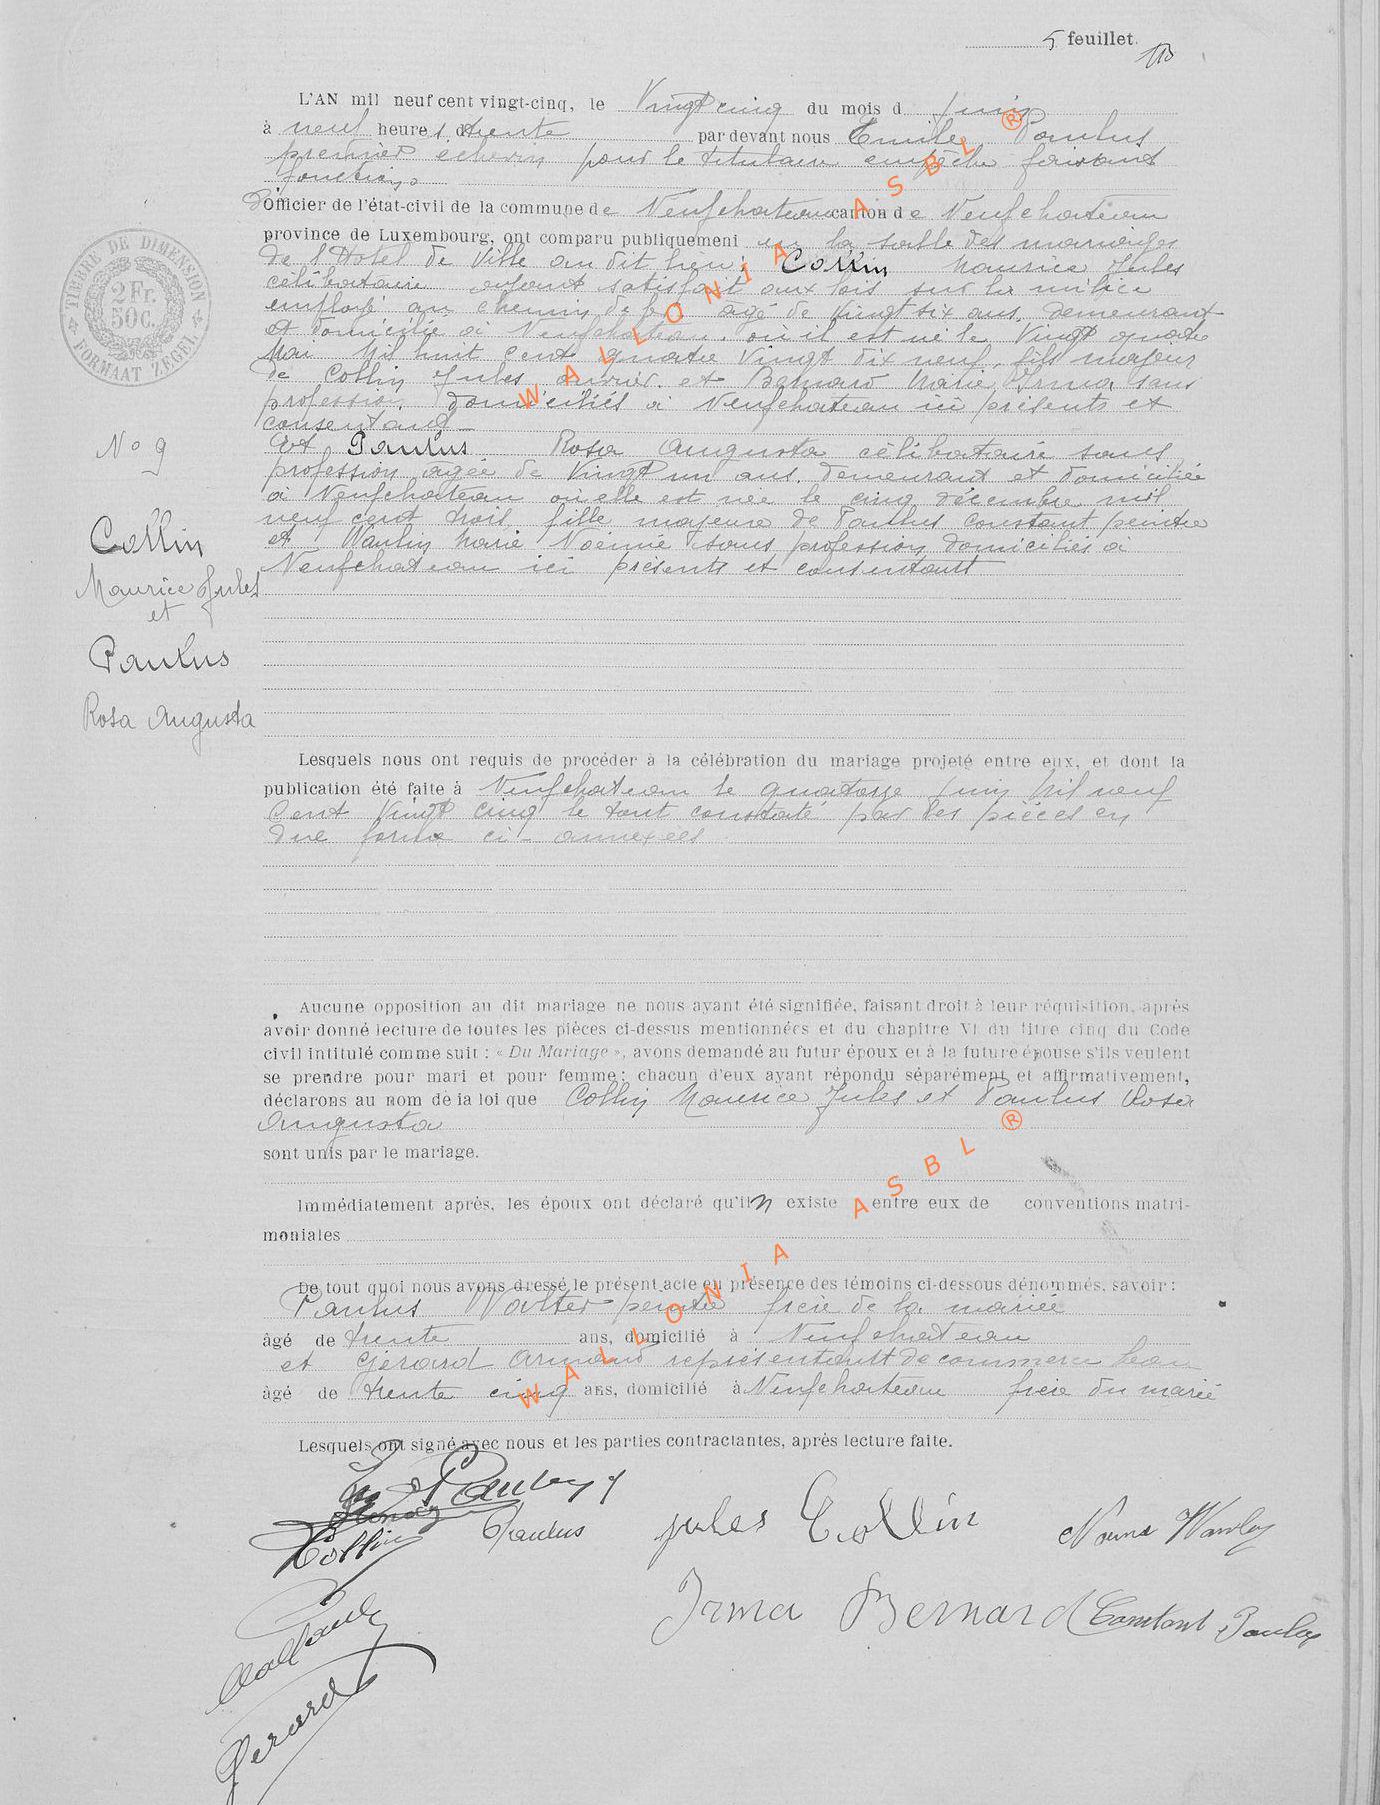 5 feuillet.
L'AN mil neuf cent vingt-cinq, le Vingt cinq du mois d juin
à neuf heures trente par devant nous Emile Paulus
premier échevin pour le titulaire empêché faisant
fonctions
d'officier de l'état-civil de la commune de Neufchateau canton de Neufchateau
province de Luxembourg, ont comparu publiquement en la salle des mariages
de l'Hotel de Ville au dit lieu : Collin Maurice Jules
célibataire ayant satisfait aux lois sur la milice
employé au chemin de fer âgé de Vingt six ans, demeurant
et domicilié à Neufchateau, où il est né le Vingt quatre
Mai Mil huit cent quatre Vingt dix neuf, fils majeur
de Collin Jules, ouvrier, et Bernard Marie Irma sans
profession, domiciliés à Neufchateau ici présents et
consentants
Et Paulus Rosa Augusta célibataire sans
profession agée de Vingt un ans, demeurant et domiciliée
à Neufchateau où elle est née le cinq décembre mil
neuf cent trois, fille majeure de Paulus Constant peintre
et Waulin Marie Noémie sans profession domiciliés à
Neufchateau ici présents et consentants
No 9
Collin
Maurice Jules
et
Paulus
Rosa Augusta
TIMBRE DE DIMENSION
2 Fr.
50 C.
FORMAAT ZEGEL
Lesquels nous ont requis de procéder à la célébration du mariage projeté entre eux, et dont la
publication été faite à Neufchateau le quatorze juin Mil neuf
Cent Vingt cinq le tout constaté par les pièces en
due forme ci-annexées
Aucune opposition au dit mariage ne nous ayant été signifiée, faisant droit à leur réquisition, après
avoir donné lecture de toutes les pièces ci-dessus mentionnées et du chapitre VI du titre cinq du Code
civil intitulé comme suit : « Du Mariage », avons demandé au futur époux et à la future épouse s'ils veulent
se prendre pour mari et pour femme : chacun d'eux ayant répondu séparément et affirmativement,
déclarons au nom de la loi que Collin Maurice Jules et Paulus Rosa
Augusta
sont unis par le mariage.
Immédiatement après, les époux ont déclaré qu'il n existe entre eux de conventions matri-
moniales
De tout quoi nous avons dressé le présent acte en présence des témoins ci-dessous dénommés, savoir :
Paulus Walter peintre frère de la mariée
âgé de trente ans, domicilié à Neufchateau
et Gérard Armand représentant de commerce beau
âgé de trente cinq ans, domicilié à Neufchateau frère du marié
Lesquels ont signé avec nous et les parties contractantes, après lecture faite.
Paulus
Collin
Paulus
Jules Collin
Irma Bernard
Constant Paulus
Gerard
WALLONIA ASBL ®
WALLONIA ASBL ®